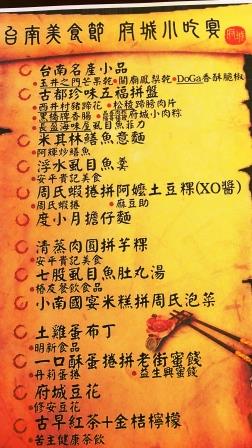 台南美食節 府城小吃宴
台南名產小品
玉井之門芒果乾 關廟鳳梨乾 DoGa香酥脆椒
古都珍味五福拼盤
西井村豬蹄花 松稜蹄膀肉片
黑橋牌香腸 府城小肉粽
長盈海味屋虱目魚菲力
米其林鱔魚意麵
阿輝炒鱔魚
浮水虱目魚羹
安平貴記美食
周氏蝦捲拼阿嬤土豆粿(XO醬)
周氏蝦捲 麻豆助
度小月擔仔麵
清蒸肉圓拼芋粿
安平貴記美食
七股虱目魚肚丸湯
椿友餐飲食品
小南國宴米糕拼周氏泡菜
土雞蛋布丁
明新食品
一口酥蛋捲拼老街蜜餞
丹莉蛋捲 益生興蜜餞
府城豆花
修安豆花
古早紅茶+金桔檸檬
苦主健康茶飲